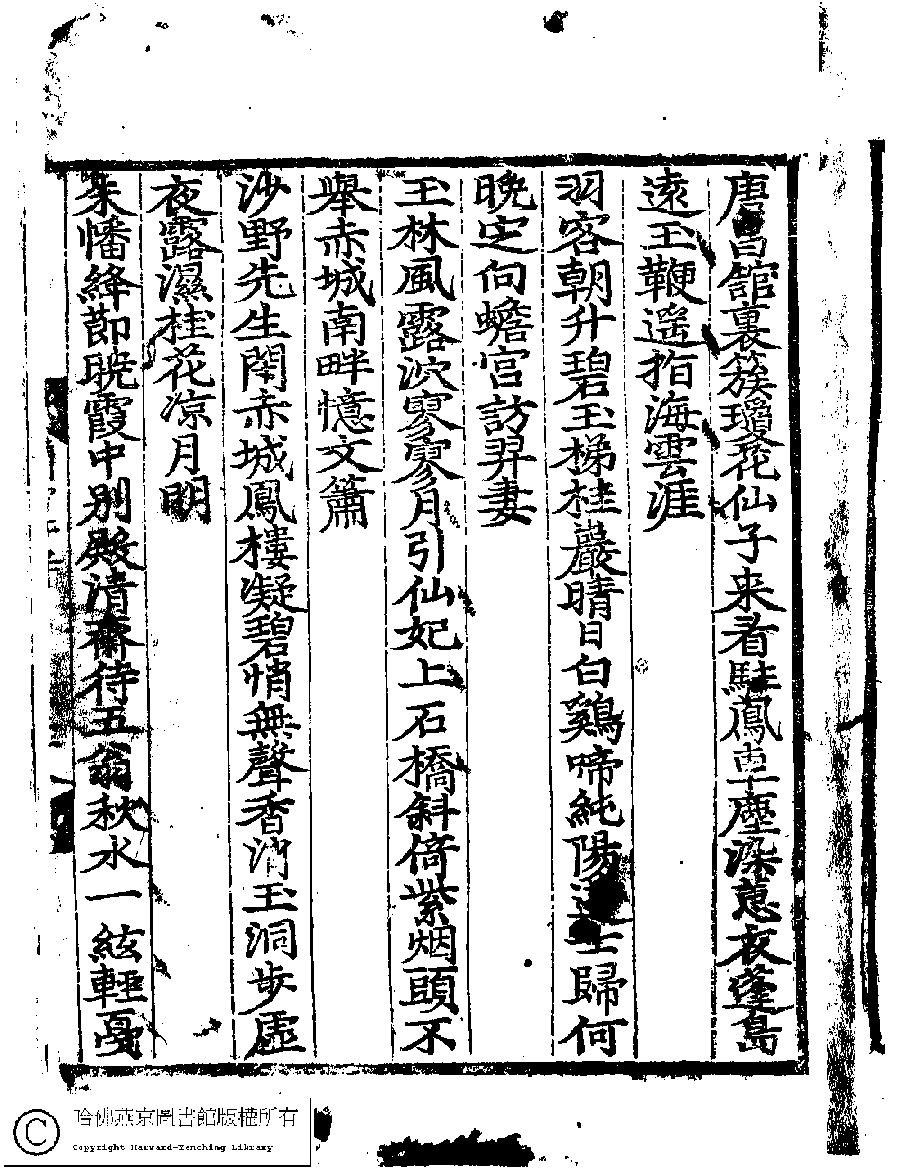 唐昌館裏簇瓊花仙子来看駐鳳車塵染蕙衣蓬島
遠玉鞭遥指海雲涯
羽客朝升碧玉梯桂巖晴日白鷄啼純陽道士歸何
晚㝎向蟾宮訪羿妻
玉林風露泬寥寥月引仙妃上石橋斜倚紫烟頭不
舉赤城南畔憶文簫
沙野先生閉赤城鳳樓凝碧悄無聲香消玉洞步虚
夜露濕桂花凉月明
朱幡絳節暁霞中別殿清齋待五翁秋水一絃輕戞
哈佛燕京圖書館版權所有
Copyright Harvard-Yenching Library